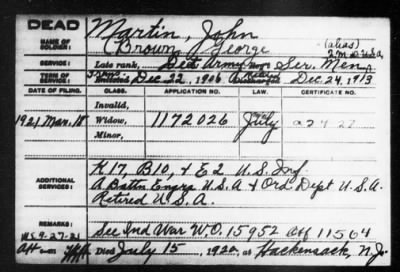 DEAD
NAME OF SOLDIER: Martin, John
(Brown, George (alias)
SERVICE: Late rank, Det Army Ser. Men,
TERM OF SERVICE: Enlisted Dec. 22, 1906 Discharged Dec. 24, 1913
DATE OF FILING. CLASS. APPLICATION NO. LAW. CERTIFICATE NO.
Invalid,
1921 Mar. 18 Widow, 1172026 July
Minor,
ADDITIONAL SERVICES: K 17, B 10, & E 2 U.S. Inf
A Battn Engrs U.S.A & Ord. Dept U.S.A.
Retired U.S.A.
REMARKS: See Ind War W.O. 15952 Off 11564
Died July 15, 1920, at Hackensack, N.J.